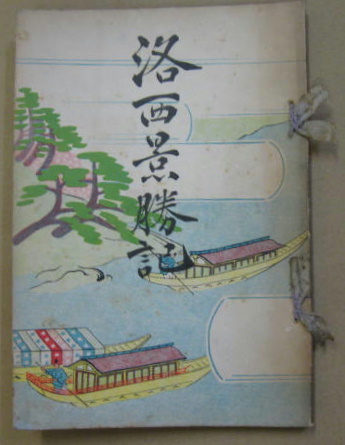 洛西景勝記